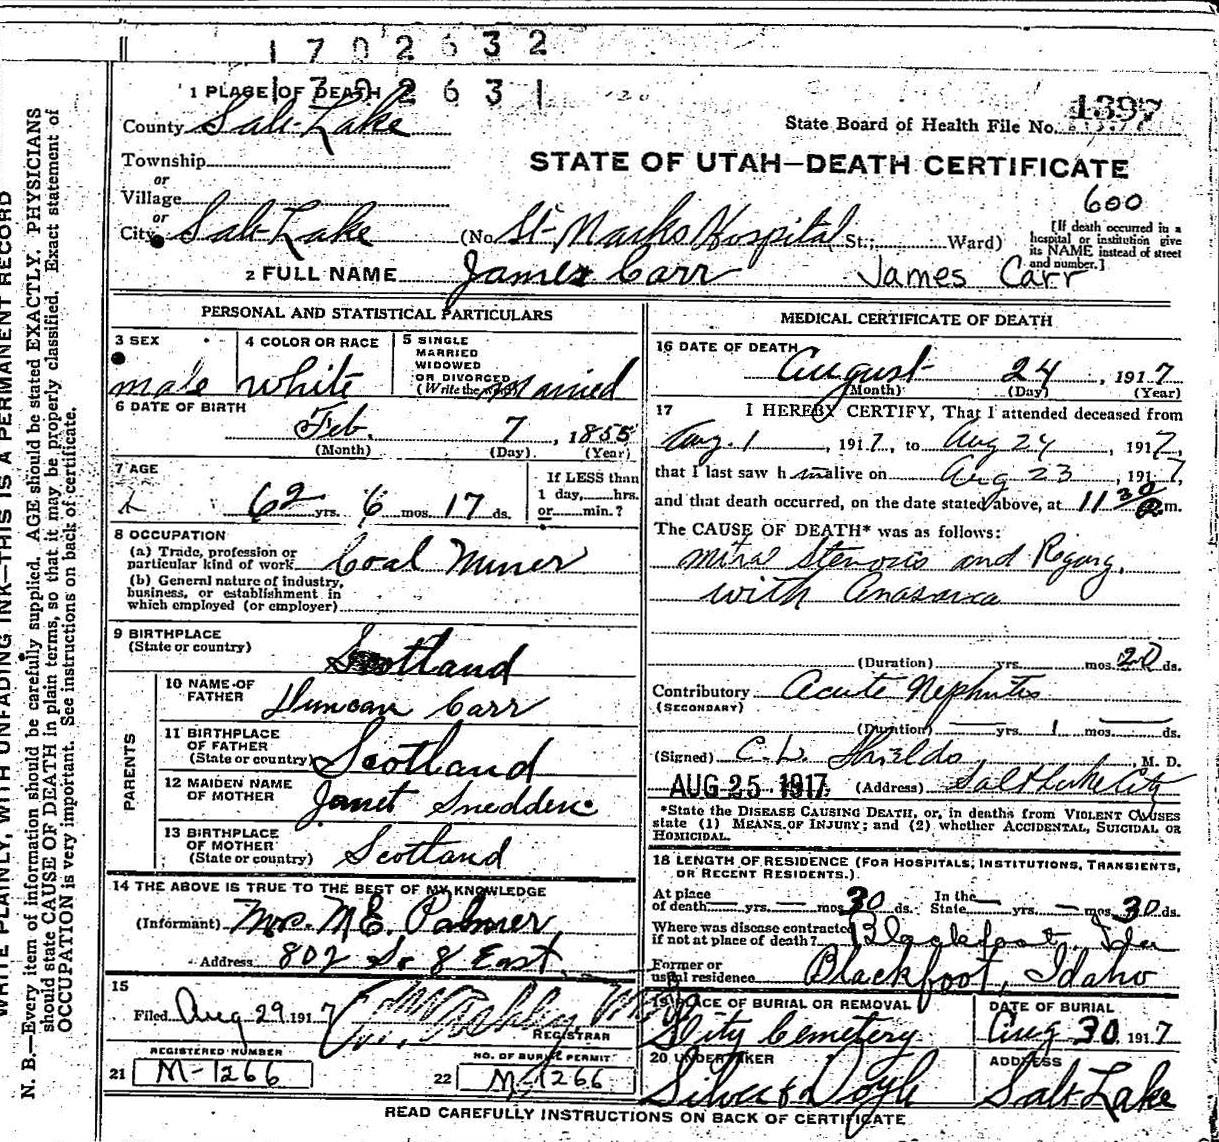 1702632
1702631
1 PLACE OF DEATH
County Salt Lake
State Board of Health File No. 1397
Township
STATE OF UTAH—DEATH CERTIFICATE
or
Village
600
or
City Salt Lake (No. St Marks Hospital St.; Ward)
[If death occurred in a hospital or institution give its NAME instead of street and number.]
2 FULL NAME James Carr James Carr
PERSONAL AND STATISTICAL PARTICULARS
3 SEX
male
4 COLOR OR RACE
white
5 SINGLE
MARRIED
WIDOWED
OR DIVORCED
(Write the word) Married
6 DATE OF BIRTH
Feb. 7, 1855
(Month) (Day) (Year)
7 AGE
62 yrs. 6 mos. 17 ds.
If LESS than
1 day, hrs.
or min.?
8 OCCUPATION
(a) Trade, profession or
particular kind of work Coal Miner
(b) General nature of industry,
business, or establishment in
which employed (or employer)
9 BIRTHPLACE
(State or country) Scotland
PARENTS
10 NAME OF
FATHER Duncan Carr
11 BIRTHPLACE
OF FATHER
(State or country) Scotland
12 MAIDEN NAME
OF MOTHER Janet Snedden
13 BIRTHPLACE
OF MOTHER
(State or country) Scotland
14 THE ABOVE IS TRUE TO THE BEST OF MY KNOWLEDGE
(Informant) Mrs. M E. Palmer
Address 802 So 8 East
15
Filed Aug 29 1917
REGISTRAR
REGISTERED NUMBER
21 M-1266
NO. OF BURIAL PERMIT
22 M-1266
MEDICAL CERTIFICATE OF DEATH
16 DATE OF DEATH
August 24, 1917
(Month) (Day) (Year)
17 I HEREBY CERTIFY, That I attended deceased from
Aug. 1, 1917, to Aug 24, 1917,
that I last saw h im alive on Aug 23, 1917,
and that death occurred, on the date stated above, at 11 30 m.
The CAUSE OF DEATH* was as follows:
Mitral Stenosis and Regurg.
with Anasarca
(Duration) yrs. mos. 20 ds.
Contributory Acute Nephritis
(SECONDARY)
(Duration) — yrs. 1 mos. — ds.
(Signed) C. L. Shields, M. D.
AUG 25 1917 (Address) Salt Lake City
*State the DISEASE CAUSING DEATH, or, in deaths from VIOLENT CAUSES
state (1) MEANS OF INJURY; and (2) whether ACCIDENTAL, SUICIDAL OR
HOMICIDAL.
18 LENGTH OF RESIDENCE (FOR HOSPITALS, INSTITUTIONS, TRANSIENTS,
OR RECENT RESIDENTS.)
At place
of death — yrs. — mos. 30 ds.
In the
State — yrs. — mos. 30 ds.
Where was disease contracted
if not at place of death? Blackfoot, Ida
Former or
usual residence Blackfoot, Idaho
19 PLACE OF BURIAL OR REMOVAL
City Cemetery
DATE OF BURIAL
Aug 30 1917
20 UNDERTAKER
Silver & Doyle
ADDRESS
Salt Lake
READ CAREFULLY INSTRUCTIONS ON BACK OF CERTIFICATE
WRITE PLAINLY, WITH UNFADING INK—THIS IS A PERMANENT RECORD
N. B.—Every item of information should be carefully supplied. AGE should be stated EXACTLY. PHYSICIANS
should state CAUSE OF DEATH in plain terms, so that it may be properly classified. Exact statement of
OCCUPATION is very important. See instructions on back of certificate.